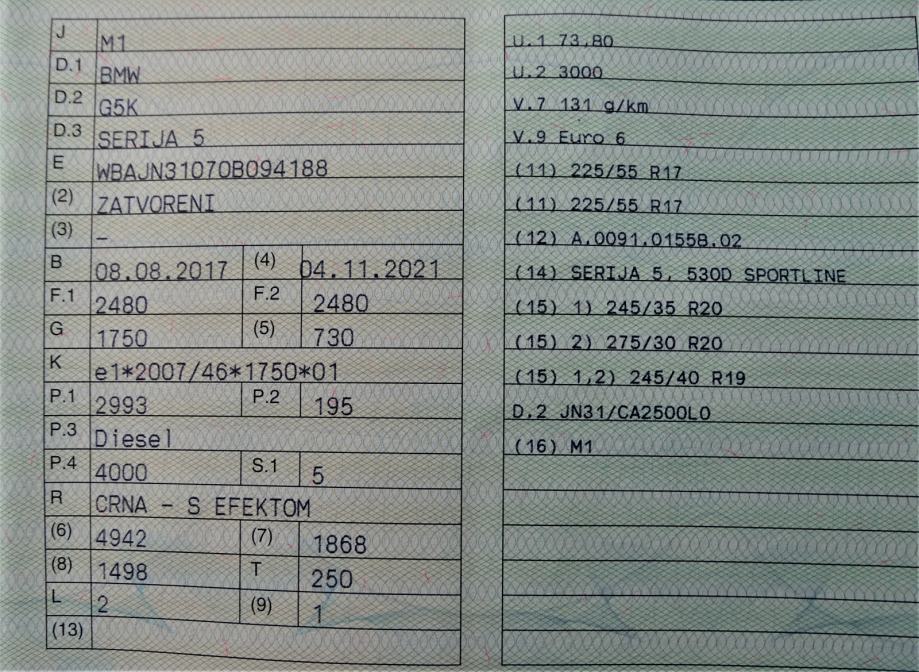 J M1
D.1 BMW
D.2 G5K
D.3 SERIJA 5
E WBAJN31070B094188
(2) ZATVORENI
(3) –
B 08.08.2017 (4) 04.11.2021
F.1 2480 F.2 2480
G 1750 (5) 730
K e1*2007/46*1750*01
P.1 2993 P.2 195
P.3 Diesel
P.4 4000 S.1 5
R CRNA – S EFEKTOM
(6) 4942 (7) 1868
(8) 1498 T 250
L 2 (9) 1
(13)
U.1 73,80
U.2 3000
V.7 131 g/km
V.9 Euro 6
(11) 225/55 R17
(11) 225/55 R17
(12) A.0091.01558.02
(14) SERIJA 5, 530D SPORTLINE
(15) 1) 245/35 R20
(15) 2) 275/30 R20
(15) 1,2) 245/40 R19
D.2 JN31/CA2500L0
(16) M1